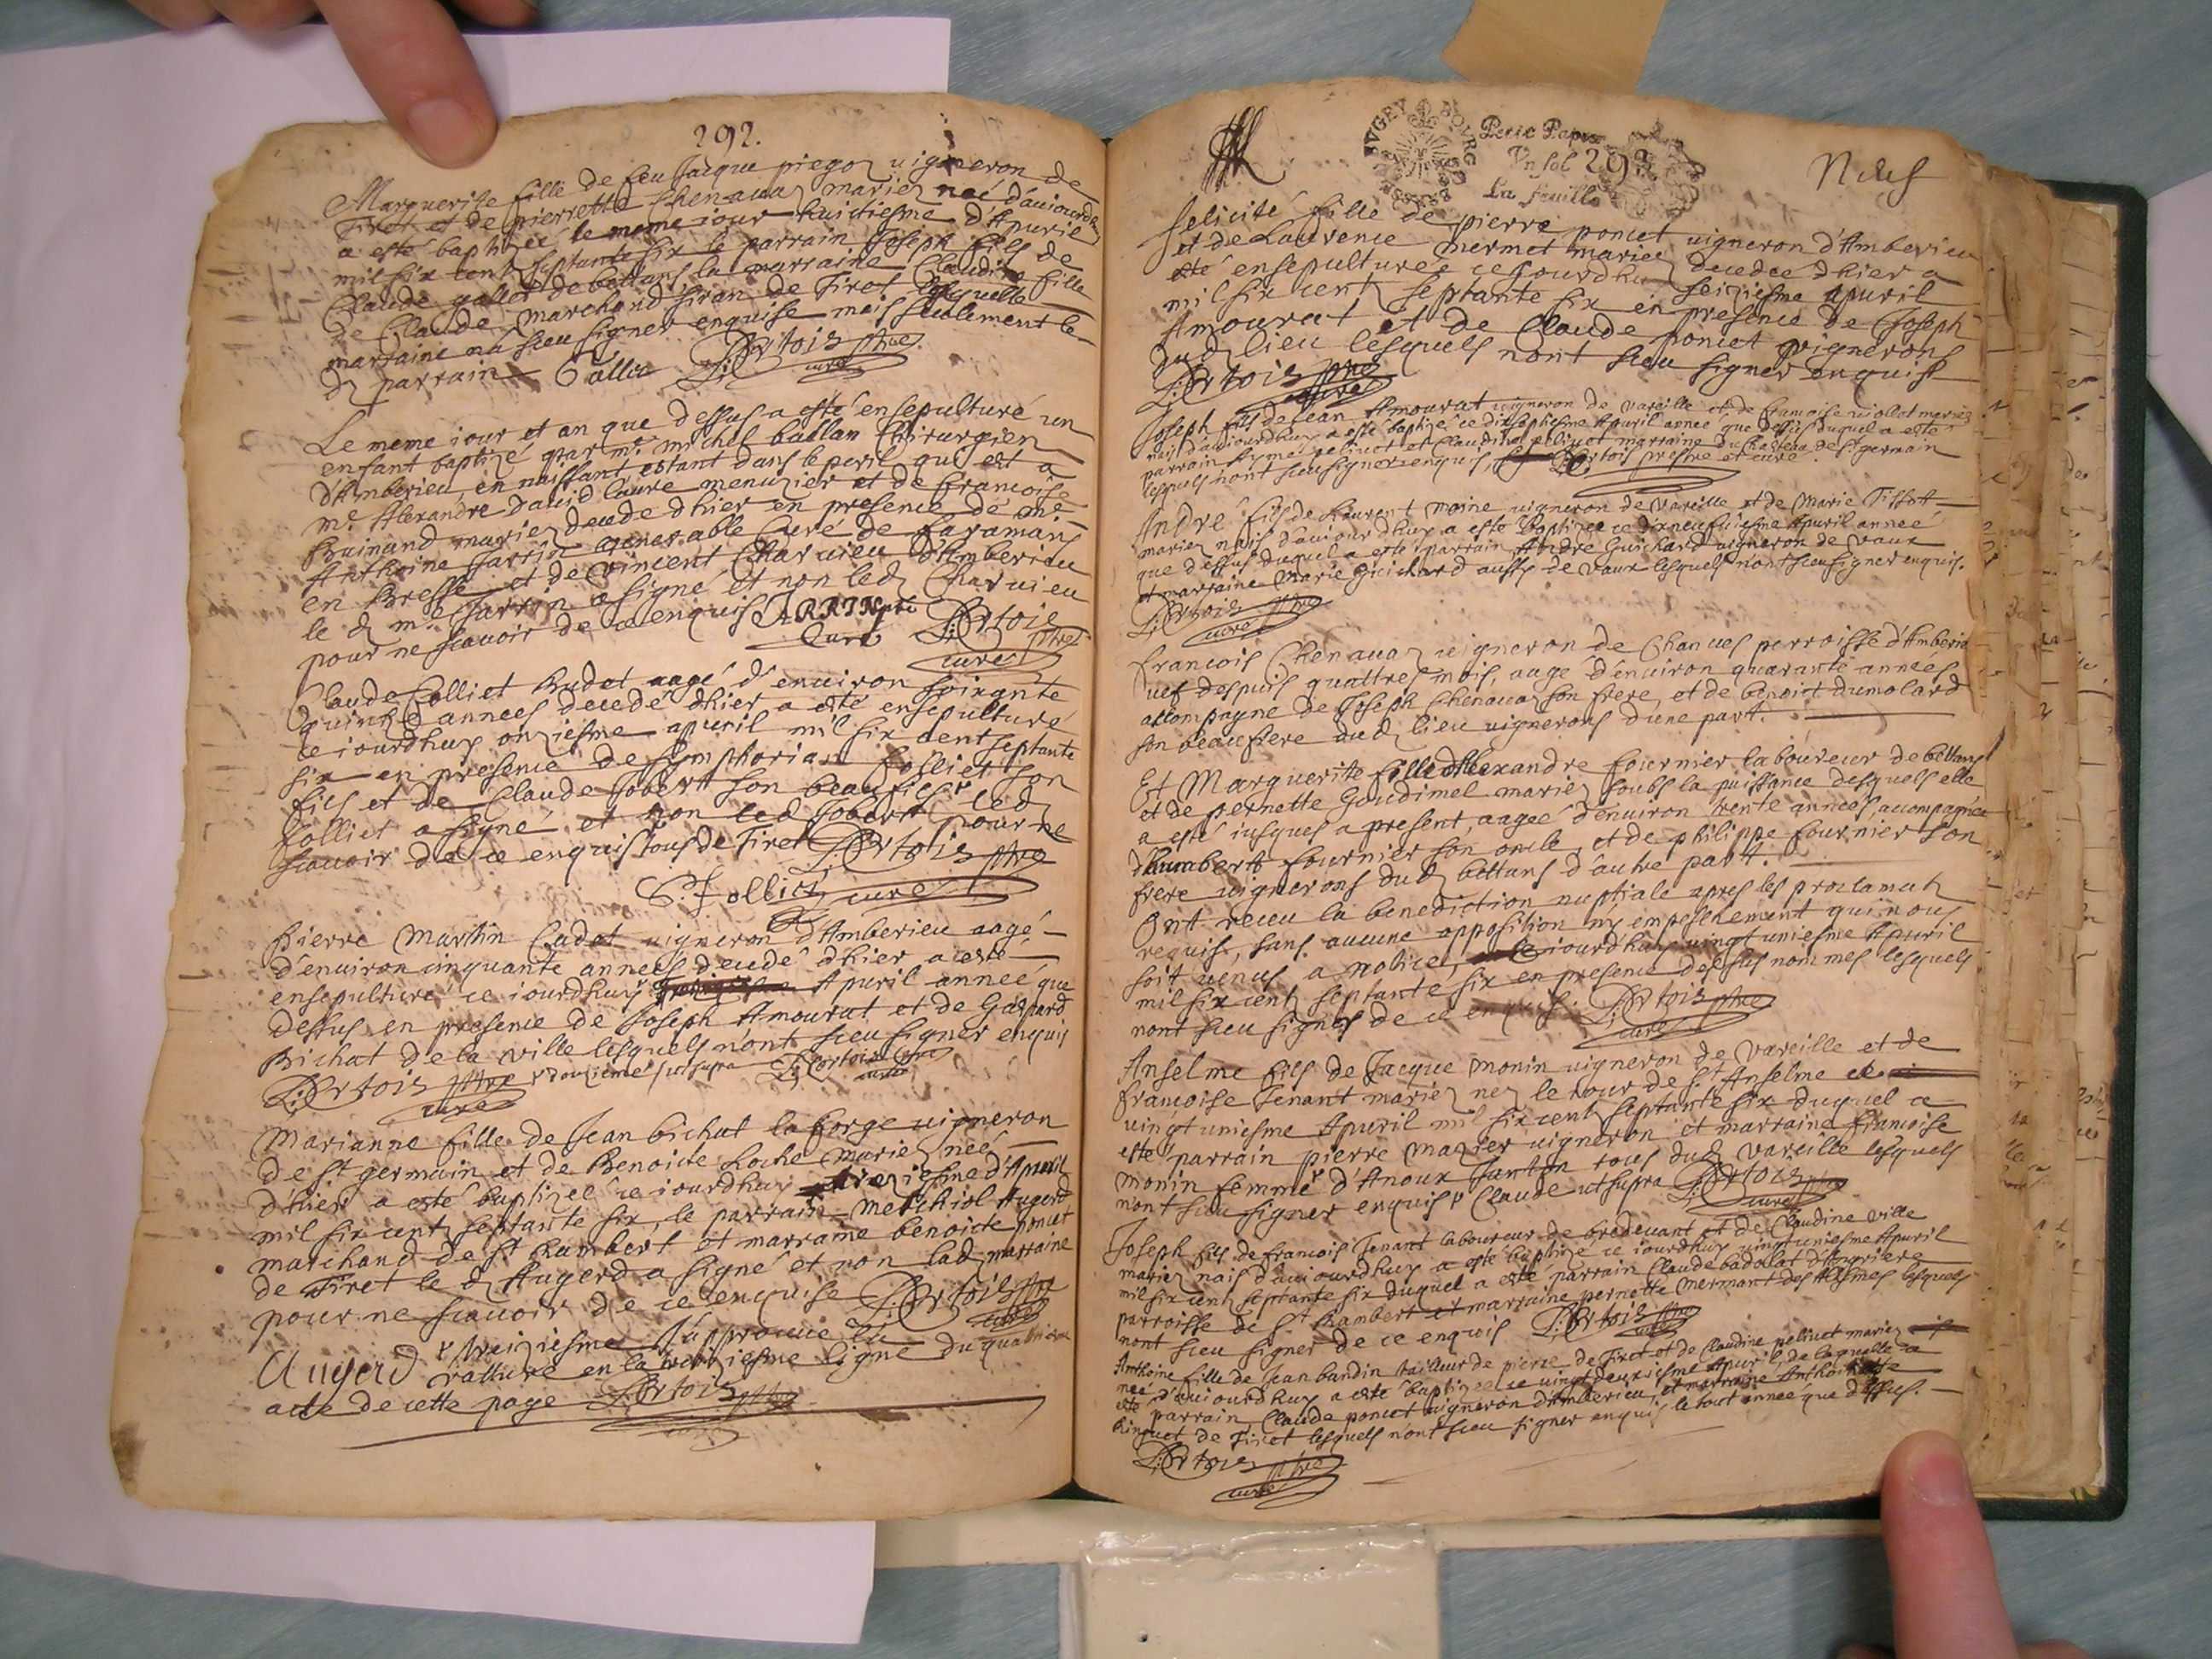 292.
Marguerite fille de feu Jacque piegoz uigneron de
Tiret et de pierrette Chenauaz mariez neé d'auiourdhuy
a esté baptizeé le meme iour huictiesme d'Apuril
mil six centz septante six le parrain Joseph fils de
Claude gallet de bettans la marraine Claudine fille
de Claude marchand de Tiret Laquelle
marraine na sceu signer enquise mais seulement le
dz parrain Gallet L: Ortois ptre curé
Le meme iour et an que dessus a esté ensepulturé un
enfant baptizé par me michel ballan Chirurgien
d'Amberieu, en naissant estant dans le peril qui est a
me Alexandre dauid laure menuzier et de francoise
Buinand mariez decede dhier en presence de me
Anthoine Jarrin venerable Curé de faramans
en Bresse et de Vincent Charuieu d'Amberieu
le dz me Jarrin a signé et non ledz Charuieu
pour ne scauoir de ce enquis JARRIN ptre Curé L: Ortois ptre curé
Claude Folliet Budet aagé d'enuiron soixante
quinze anneés decedé dhier a esté ensepulturé
ce iourdhuy onziesme apuril mil six centz septante
six en presence de symphorian folliet son
fils et de Claude Jobert son beaufils ledz
folliet a signé et non ledz Jobert pour ne
scauoir de ce enquis tous de Tiret L: Ortois ptre
S. Folliet curé
Pierre Martin Cadet uigneron d'Amberieu aagé
d'enuiron cinquante anneés decedé dhier a esté
ensepulturé ce iourdhuy Apuril anneé que
dessus en presence de Joseph Amourat et de Gaspard
Bichat de la ville lesquels n'ont sceu signer enquis
L: Ortois ptre curé douzieme ut supra L: Ortois ptre curé
Marianne fille de Jean bichat laforge uigneron
de st germain et de Benoicte Loche mariez neé
d'hier a esté baptizeé ce iourdhuy treiziesme d'Apuril
mil six centz septante six, le parrain Melchiol Augerd
marchand de st Rambert et marraine benoicte poncet
de Tiret le dz Augerd a signé et non ladz marraine
pour ne scauoir de ce enquise L: Ortois ptre curé
Augerd treiziesme J'approuue la
ratture en la troisiesme ligne du quatrieme
acte de cette page L: Ortois ptre curé
BVGEY BOVRG
Petit Papier
Vn sol 293.
La feuille
Neuf
Felicité fille de pierre poncet uigneron d'Amberieu
et de Laurence mermet mariez decedeé dhier a
esté ensepultureé ce iourdhuy seiziesme apuril
mil six centz septante six en presence de Joseph
Amourat et de Claude poncet vignerons
dudz lieu lesquels nont sceu signer enquis
L: Ortois ptre curé
Joseph fils de Jean Amourat uigneron de Vareille et de francoise uiollet mariez
nais d'auiourdhuy a esté baptizé ce dixseptiesme Apuril anneé que dessus duquel a esté
parrain Aymé pelinet et Claudine pelinet marraine du Chasteau de st germain
lesquels nont sceu signer enquis, L: Ortois prestre et curé
André fils de Laurent moine uigneron de Vareille et de Marie Tissot
mariez nais d'auiourdhuy a esté baptizé ce dixneufuiesme Apuril anneé
que dessus duquel a esté parrain Andre Guichard uigneron de vaux
et marraine marie guichard aussy de vaux lesquels n'ont sceu signer enquis.
L: Ortois ptre curé
Francois Chenauaz uigneron de Chanues perroisse d'Amberieu
uef despuis quattres mois, aagé d'enuiron quarante anneés
accompagné de Joseph Chenauaz son frere, et de benoict dumolard
son beaufrere dudz lieu uignerons d'une part.
Et Marguerite fille d'Alexandre fournier laboureur de bettans
et de pernette Goudimel mariez soubs la puissance desquels elle
a esté iusques a present, aageé d'enuiron trente anneés, accompagneé
d'humbert fournier son oncle, et de philippe fournier son
frere uignerons dudz bettans d'autre part.
Ont receu la benediction nuptiale apres les proclamatz
requis, sans aucune opposition ny empeschement qui nous
soit uenus a notice, ce iourdhuy uingt uniesme Apuril
mil six centz septante six en presence dessus nommes lesquels
nont sceu signés de ce enquis. L: Ortois ptre curé
Anselme fils de Jacque Monin uigneron de Vareille et de
francoise Tenant mariez nez le iour de st Anselme
uingt uniesme Apuril mil six centz septante six duquel a
esté parrain pierre mazier uigneron et marraine francoise
monin femme d'Anoux Janton tous dudz Vareille lesquels
nont sceu signer enquis Claude ut supra L: Ortois ptre curé
Joseph fils de francois Tenant laboureur de bredeuant et de Claudine ville
mariez nais d'auiourdhuy a esté baptizé ce iourdhuy uingt uniesme Apuril
mil six centz septante six duquel a esté parrain Claude badollat d'Angriere
parroisse de st Rambert et marraine pernette mermant des Alesmes lesquels
nont sceu signer de ce enquis L: Ortois ptre curé
Antheine fille de Jean bandin tailleur de pierre de Tiret et de Claudine pelinet mariez
neé d'auiourdhuy a esté baptizeé ce uingtdeuxiesme Apuril, de laquelle a
esté parrain Claude poncet uigneron d'Amberieu, et marraine Anthoinette
Binguet de Tiret lesquels n'ont sceu signer enquis le tout anneé que dessus.
L: Ortois ptre curé